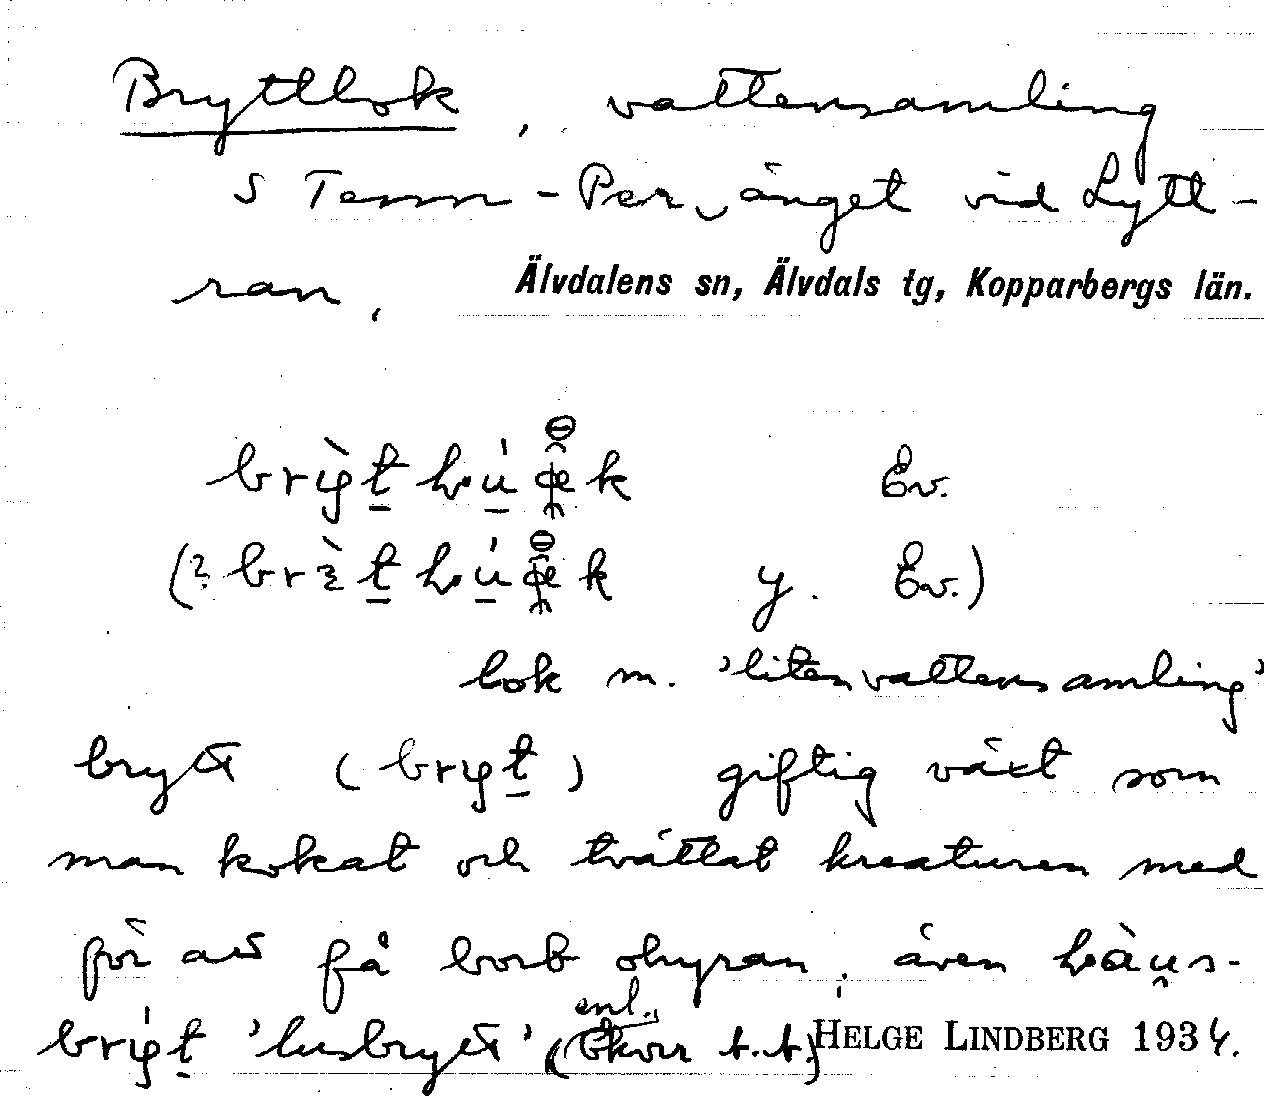 Bryttlok, vattensamling
S Tenn-Per änget vid Lytt-
ran,
Älvdalens sn, Älvdals tg, Kopparbergs län.
Ev.
y. Ev.)
lok m. 'liten vattensamling'
brytt giftig växt som
man kokat och tvättat kreaturen med
för att få bort ohyran, även
'lusbrytt' (enl. t.t.)
HELGE LINDBERG 1934.